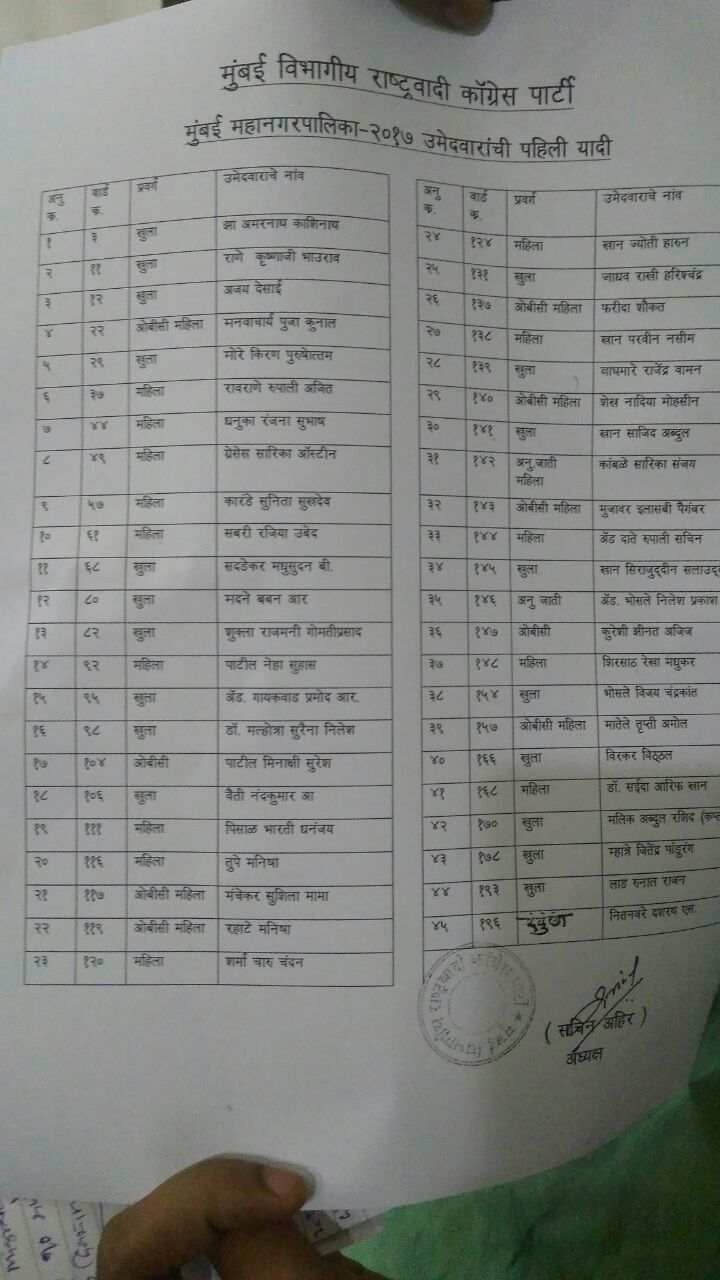 मुंबई विभागीय राष्ट्रवादी काँग्रेस पार्टी
मुंबई महानगरपालिका-२०१७ उमेदवारांची पहिली यादी
अनु क. वार्ड क. प्रवर्ग उमेदवाराचे नांव
१ ३ खुला झा अमरनाथ काशिनाथ
२ ११ खुला राणे कृष्णाजी भाउराव
३ १२ खुला अजय देसाई
४ २२ ओबीसी महिला मनवाचार्य पुजा कुनाल
५ २९ खुला मोरे किरण पुरुषोत्तम
६ ३७ महिला रावराणे रुपाली अजित
७ ४४ महिला धनुका रंजना सुभाष
८ ४९ महिला ग्रेसेस सारिका ऑस्टीन
९ ५७ महिला कारंडे सुनिता सुखदेव
१० ६१ महिला सबरी रजिया उबेद
११ ६८ खुला सदडेकर मधुसुदन बी.
१२ ८० खुला मदने बबन आर
१३ ८२ खुला शुक्ला राजमनी गोमतीप्रसाद
१४ ९२ महिला पाटील नेहा सुहास
१५ ९५ खुला ॲड. गायकवाड प्रमोद आर.
१६ ९८ खुला डॉ. मल्होत्रा सुरैना निलेश
१७ १०४ ओबीसी पाटील मिनाक्षी सुरेश
१८ १०६ खुला वैती नंदकुमार आ
१९ १११ महिला पिसाळ भारती धनंजय
२० ११६ महिला तुपे मनिषा
२१ ११७ ओबीसी महिला मंचेकर सुशिला मामा
२२ ११९ ओबीसी महिला रहाटे मनिषा
२३ १२० महिला शर्मा चारु चंदन
अनु क. वार्ड क. प्रवर्ग उमेदवाराचे नांव
२४ १२४ महिला खान ज्योती हारुन
२५ १३१ खुला जाधव राखी हरिश्चंद्र
२६ १३७ ओबीसी महिला फरीदा शौकत
२७ १३८ महिला खान परवीन नसीम
२८ १३९ खुला वाघमारे राजेंद्र वामन
२९ १४० ओबीसी महिला शेख नादिया मोहसीन
३० १४१ खुला खान साजिद अब्दुल
३१ १४२ अनु.जाती महिला कांबळे सारिका संजय
३२ १४३ ओबीसी महिला मुजावर इलासबी पैगंबर
३३ १४४ महिला ॲड दाते रुपाली सचिन
३४ १४५ खुला खान सिराजुद्दीन
३५ १४६ अनु जाती ॲड. भोसले निलेश प्रकाश
३६ १४७ ओबीसी कुरेशी झीनत अजिज
३७ १४८ महिला शिरसाठ रेसा मधुकर
३८ १५४ खुला भोसले विजय चंद्रकांत
३९ १५७ ओबीसी महिला मातेले तृप्ती अमोल
४० १६६ खुला विरकर विठ्ठल
४१ १६८ महिला डॉ. सईदा आरिफ खान
४२ १७० खुला मलिक अब्दुल रशिद
४३ १७८ खुला म्हात्रे जितेंद्र पांडुरंग
४४ १९३ खुला लाड
४५ १९६ दशरथ एस.
( सचिन अहिर )
अध्यक्ष